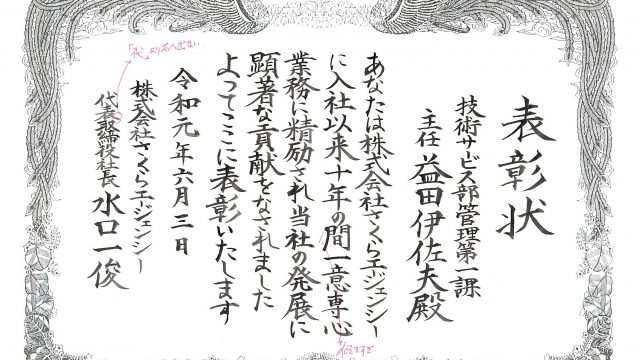 表彰状
技術サービス部管理第一課
主任 益田伊佐夫殿
あなたは株式会社さくらエージェンシー
に入社以来十年の間一意専心
業務に精励され当社の発展に
顕著な貢献をなされました
よってここに表彰いたします
令和元年六月三日
株式会社さくらエージェンシー
代表取締役社長 水口一俊
より右へ出ない